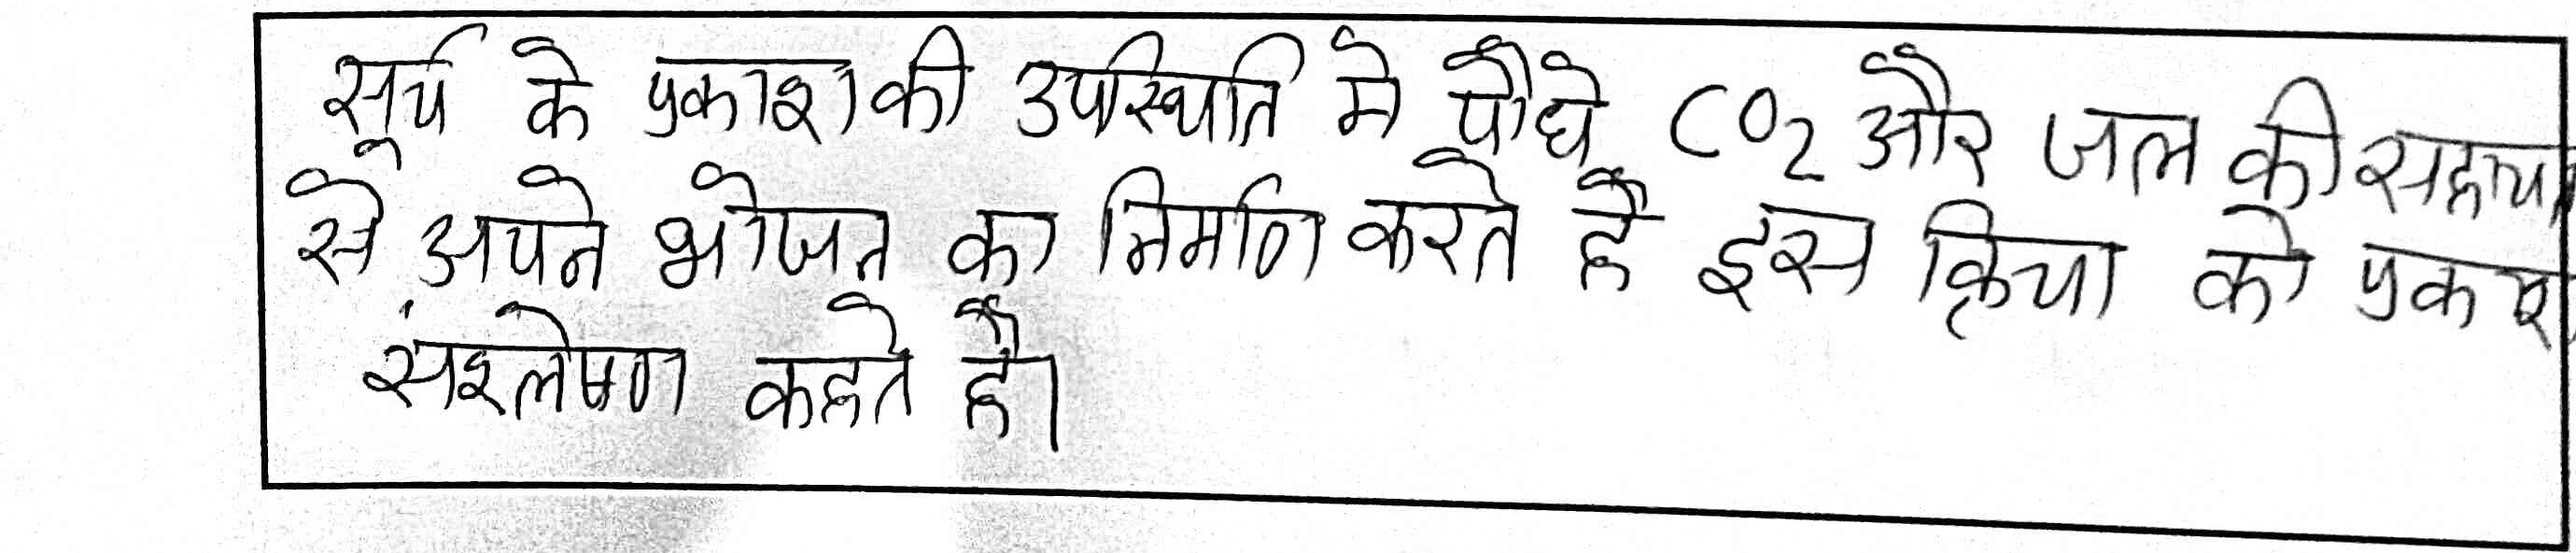 सूर्य के प्रकाश की उपस्थिति मे पौधे CO₂ और जल की सहाया
से अपने भोजन का निर्माण करते है इस क्रिया को प्रकाश
संश्लेषण कहते है।